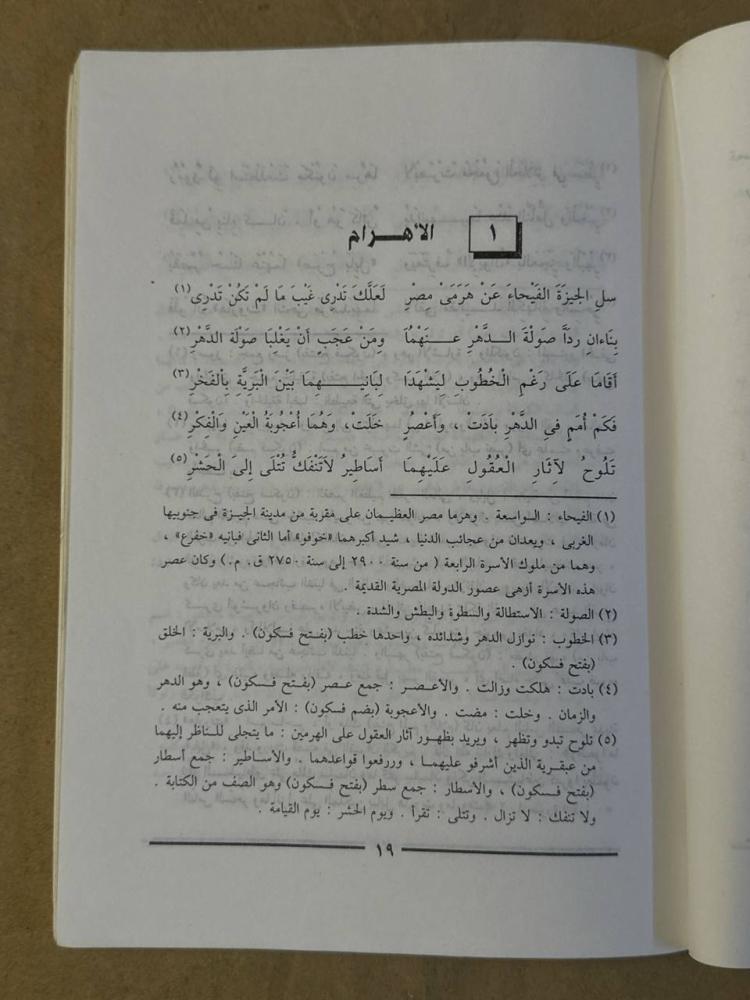 ١
الأهـــرام
سلِ الجيزَةَ الفَيْحاءَ عَنْ هَرَمَىْ مِصْرِ لَعَلَّكَ تَدْرِى غَيْبَ مَا لَمْ تَكُنْ تَدْرِى(١)
بِنَاءانِ ردَآَّ صَولَةَ الــدَّهْرِ عـــنَهْمُاَ ومِنْ عَجَبٍ أَنْ يَغْلِبَا صَوْلَةَ الدَّهْرِ(٢)
أقَامَا عَلَى رَغْمِ الْخُطُوبِ لِيَشْهَدَا لِبَانيـــــهِمَا بَيْنَ الْبَرِيَّةِ بِاْلفَخْرِ(٣)
فَكَمْ أُمَمٍ فىِ الدَّهْرِ باَدَتْ ، وأَعْصُرٍ خَلَتْ، وَهُمَا أُعْجُوبَةُ الْعَيْنِ وَالْفِكْرِ(٤)
تَلُوحُ لآِثَارِ الْعُقُولِ عَلَيْهِمَا أَسَاطِيرُ لاَتَنْفَكُّ تُتْلَى إِلىَ الْحَشْرِ(٥)
(١) الفيحاء : الـواسعة . وهرما مصر العظيـمان على مقربة من مدينة الجيـزة فى جنوبيها
الغربى ، ويعدان من عجائب الدنيا ، شيد أكبرهما «خوفو» أما الثانى فبانيه «خفرع» ،
وهما من ملوك الأسرة الرابعة ( من سنة ٢٩٠٠ إلى سنة ٢٧٥٠ ق. م.) وكان عصر
هذه الأسرة أزهى عصور الدولة المصرية القديمة .
(٢) الصولة : الاستطالة والسطوة والبطش والشدة .
(٣) الخطوب : نوازل الدهر وشدائده ، واحدها خطب (بفـتح فسكون) . والبرية : الخلق
(بفتح فسكون) .
(٤) بادت : هلكت وزالت . والأعـصـر : جمع عـصر (بـفتح فـسكون) ، وهو الدهر
والزمان . وخلت : مضت . والأعجوبة (بضم فسكون) : الأمر الذى يتعجب منه .
(٥) تلوح تبدو وتظهر ، ويريد بظهـور آثار العقول على الهرمين : ما يتجلى للـناظر إليهما
من عبقرية الذين أشرفو عليهمـا ، وررفعوا قواعدهمـا . والأساطير : جمع أسطار
(بفتح فسكون) ، والأسطار : جمع سطر (بفتح فسكون) وهو الصف من الكتابة .
ولا تنفك : لا تزال . وتتلى : تقرأ . ويوم الحشر : يوم القيامة .
١٩